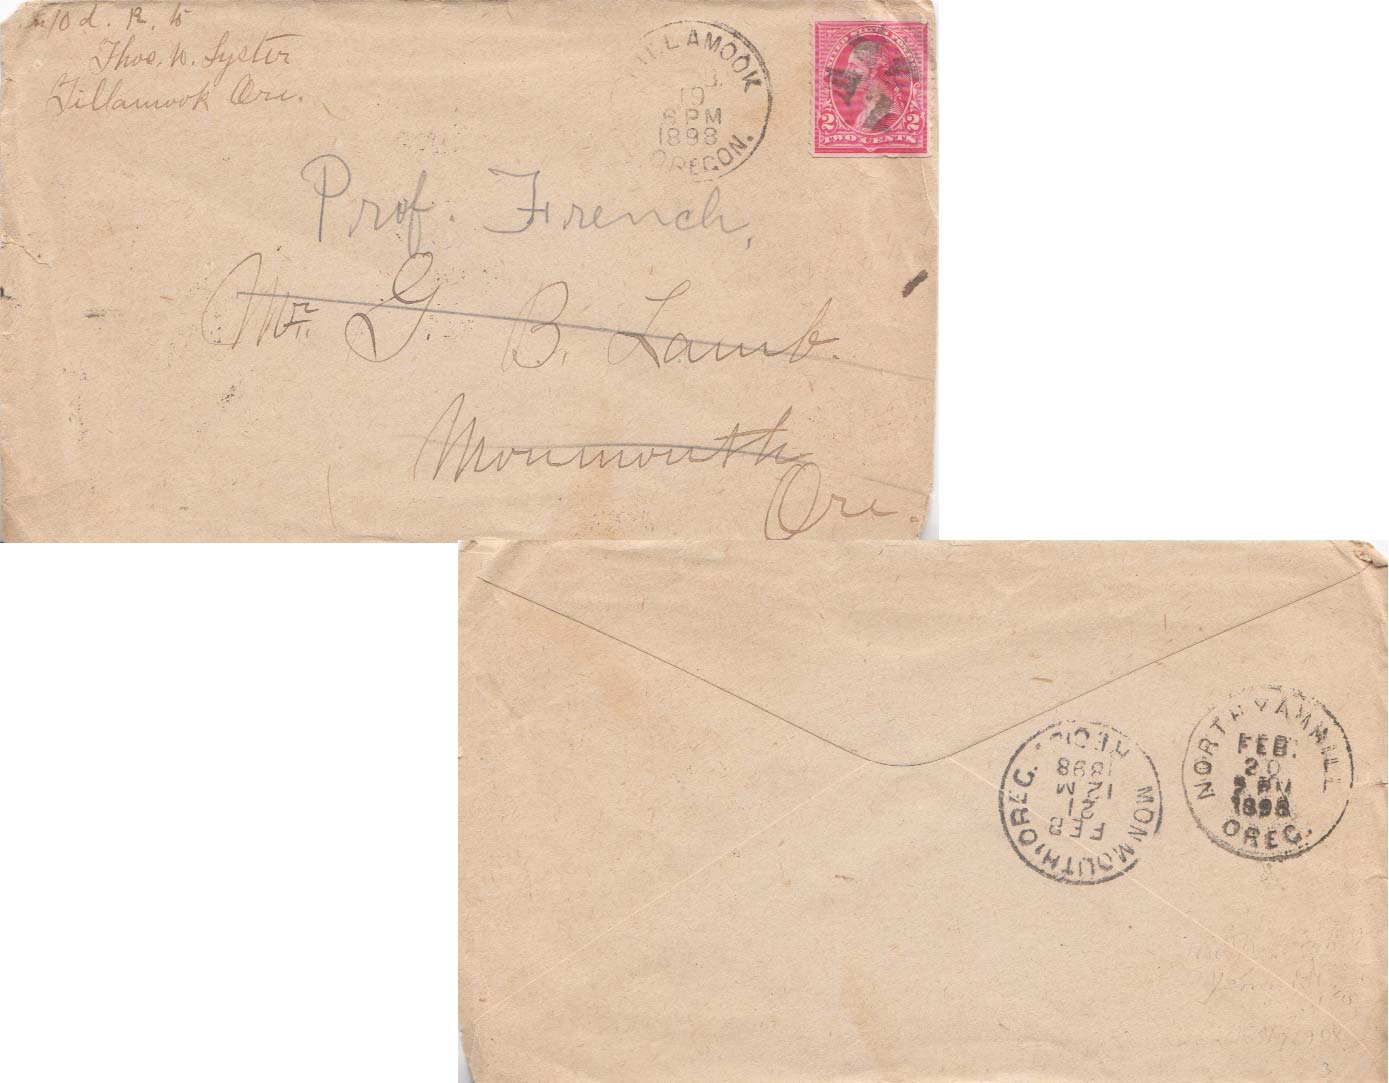 in 10 d. R. to
Thos. W. Lyster
Tillamook Ore.
TILLAMOOK
19
6 PM
1898
OREGON.
UNITED STATES POSTAGE
2 2
TWO CENTS
Prof. French,
Mr. G. B. Lamb.
Monmouth
Ore.
NORTH YAMHILL
FEB.
20
PM
1898
OREG.
MONMOUTH, OREG.
FEB
21
12 M
1898
REC'D.